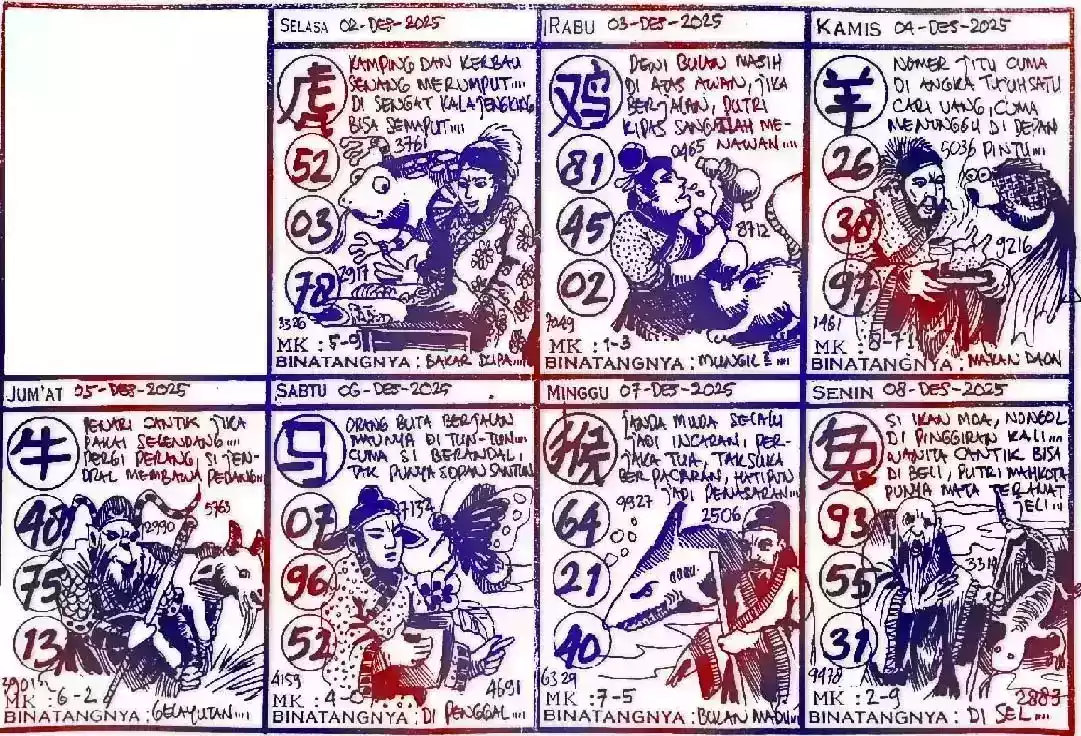 SELASA 02-DES-2025
虎
KAMPING DAN KERBAU
SENANG MERUMPUT....
DI SENGAT KALAJENGKING
BISA SEMAPUT....
3761
52
03
78
2917
3326
MK : 5-9
BINATANGNYA : BAKAR DUPA....
RABU 03-DES-2025
鸡
DEWI BULAN MASIH
DI ATAS AWAN, JIKA
BERJALAN, PUTRI
KIPAS SANGATLAH ME-
NAWAN....
0465
81
45
02
8712
MK : 1-3
BINATANGNYA : MUNGIL
KAMIS 04-DES-2025
羊
NOMER JITU CUMA
DI ANGKA TUJUHSATU
CARI UANG, CUMA
MENUNGGU DI DEPAN
PINTU....
5036
26
38
97
9216
3461
MK : 8-71
BINATANGNYA : MAKAN DAON
JUM'AT 05-DES-2025
牛
PENARI CANTIK JIKA
PAKAI SELENDANG....
PERGI PERANG, SI JEN-
DRAL MEMBAWA PEDANG...
5763
2990
48
75
13
MK : 6-2
BINATANGNYA : GELAYUTAN....
SABTU 06-DES-2025
马
ORANG BUTA BERJALAN
MAUNYA DI TUN-TUN...
CUMA SI BERANDAL,
TAK PUNYA SOPAN SANTUN
7134
07
96
52
4159
4691
MK : 4-0
BINATANGNYA : DI PENGGAL....
MINGGU 07-DES-2025
猴
JANDA MUDA SELALU
JADI INCARAN, PER-
JAKA TUA, TAK SUKA
BERPACARAN, HATIPUN
JADI PENASARAN...
9327
2506
64
21
40
6329
MK : 7-5
BINATANGNYA : BULAN MADU....
SENIN 08-DES-2025
兔
SI IKAN MOA, NONGOL
DI PINGGIRAN KALI....
WANITA CANTIK BISA
DI BELI, PUTRI MAHKOTA
PUNYA MATA TERAWAT
JELI....
93
55
31
3319
9478
2883
MK : 2-9
BINATANGNYA : DI SEL....